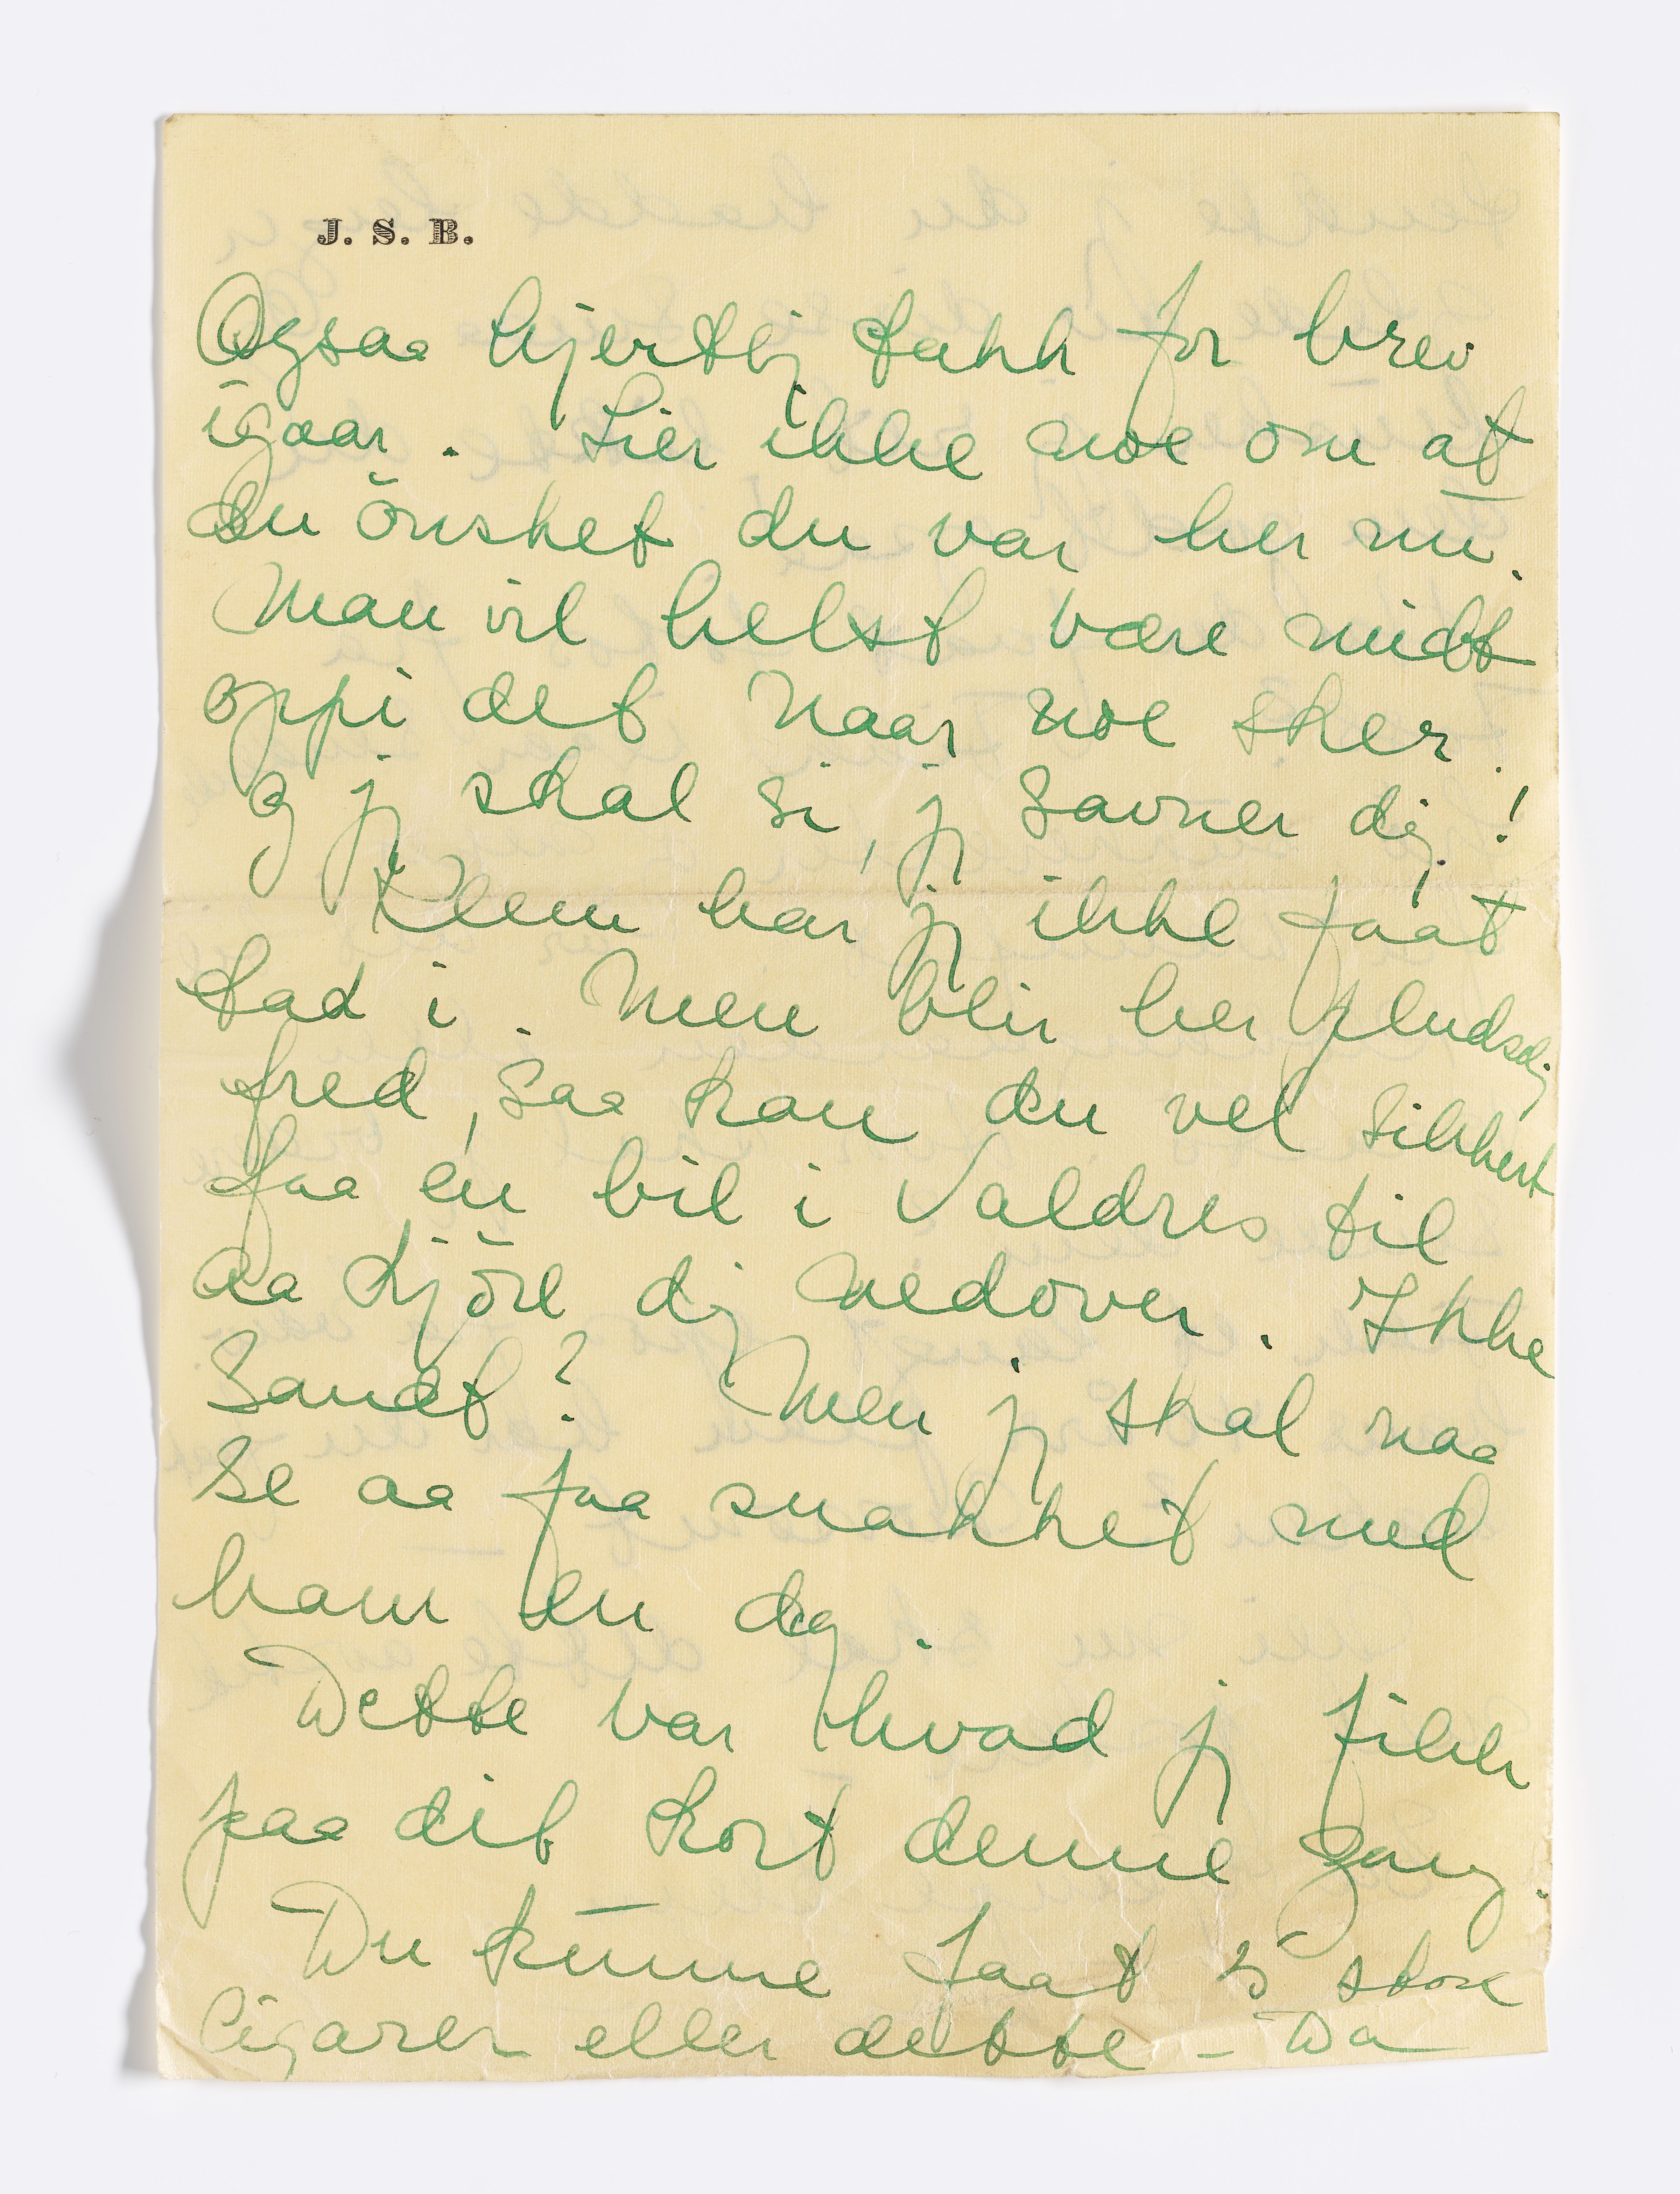 J. S. B.
Ogsaa hjertlig takk for brev
igaar. Sier ikke noe om at
du önsket du var her nu.
Man vil helst være midt
oppi det naar noe sker.
Og jg skal si, jg savner dig!
Klem har jg ikke faat
tad i. Men blir her pludselig
fred, saa kan du vel sikkert
faa en bil i Valdres til
aa kjöre dig nedover. Ikke
sandt? Men jg skal naa
se aa faa snakket med
ham en dag.
Dette var hvad jg fikk
paa dit kort denne gang.
Du kunne faat 5 store
Cigarer eller dette – Da